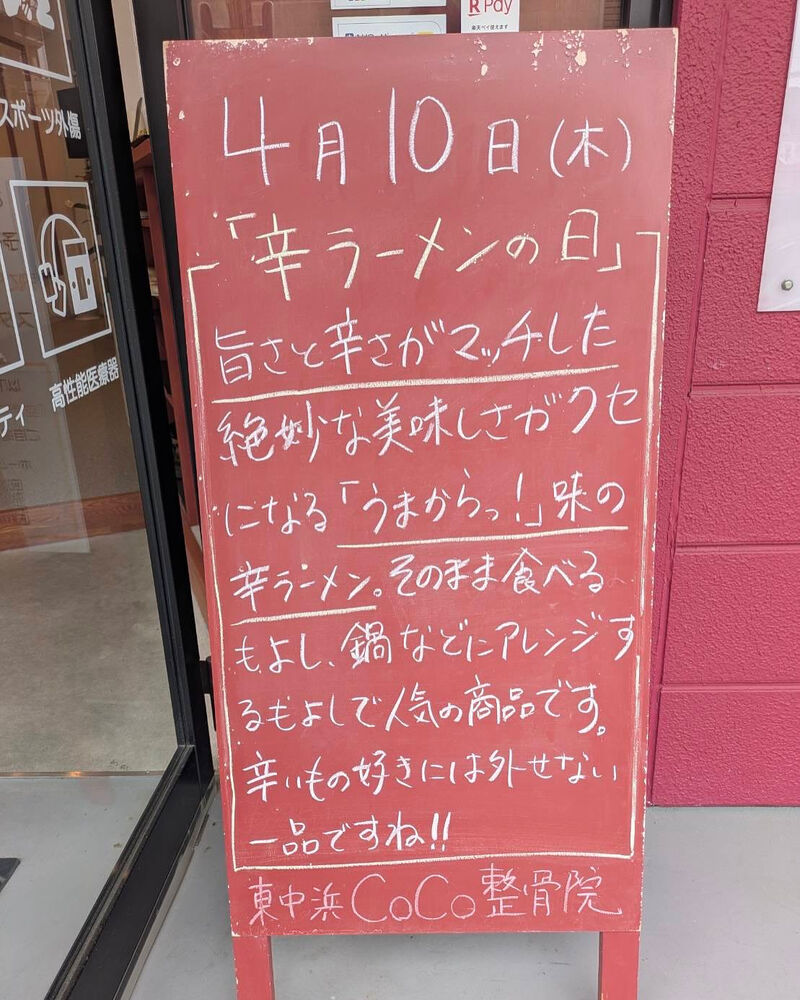 R Pay
楽天ペイ使えます
スポーツ外傷
高性能医療器
ティ
4月10日(木)
「辛ラーメンの日」
旨さと辛さがマッチした
絶妙な美味しさがクセ
になる「うまからっ!」味の
辛ラーメン。そのまま食べる
もよし、鍋などにアレンジす
るもよしで人気の商品です。
辛いもの好きには外せない
一品ですね!!
東中浜CoCo整骨院